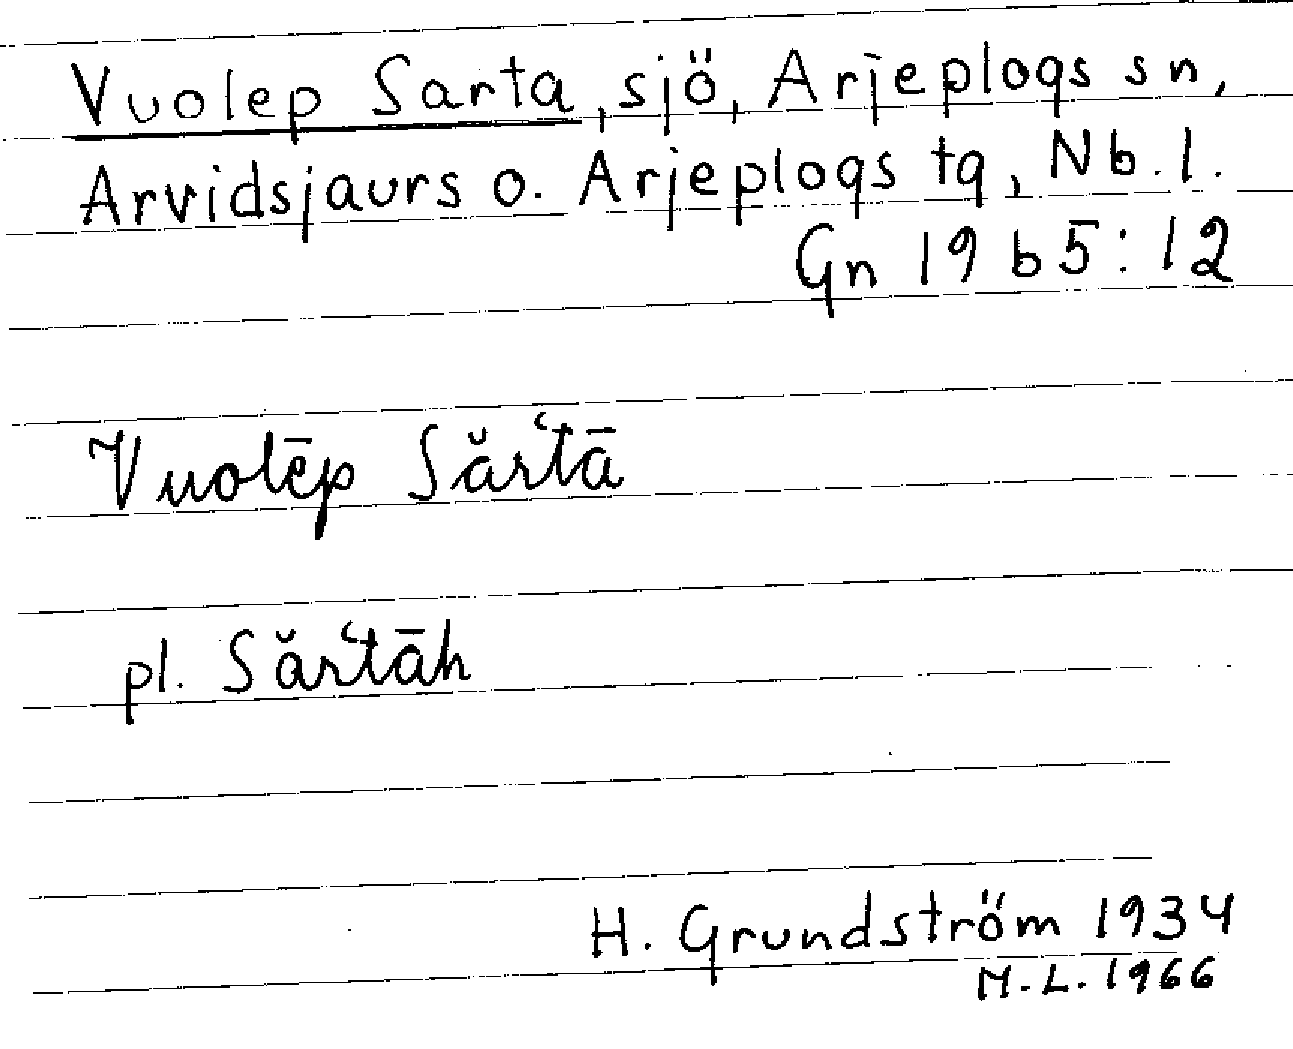 Vuolep Sarta, sjö, Arjeplogs sn,
Arvidsjaurs o. Arjeplogs tg, Nb.l.
Gn 1965:12
Vuolēp Sărʻtā
pl. Sărʻtāh
H. Grundström 1934
M.L. 1966